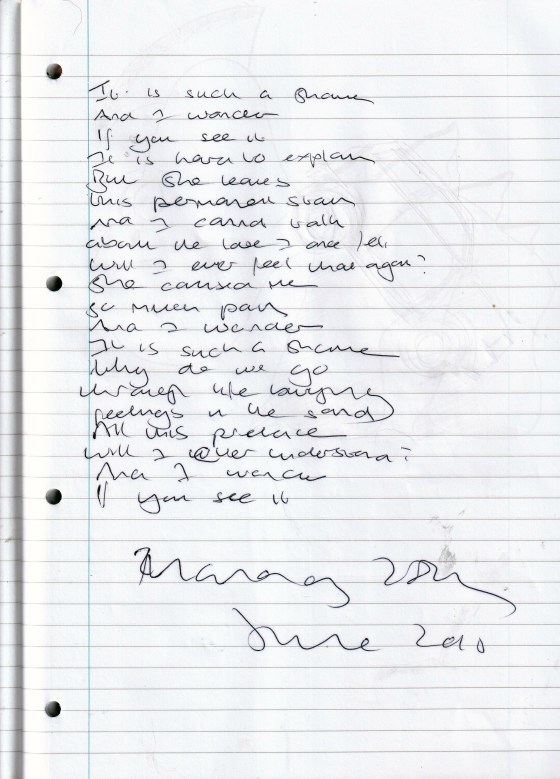 It is such a shame
And I wonder
If you see it
It is hard to explain
But she leaves
this permanent stain
And I cannot talk
about the love I once felt
Will I ever feel that again?
She caused me
so much pain
And I wonder
It is such a shame
Why do we go
through life burying
feelings in the sand
All this pretence
Will I ever understand?
And I wonder
If you see it
June 2010